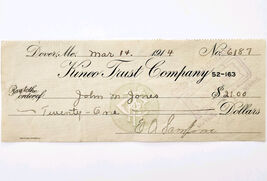 Dover, Mo. Mar 14. 1914 No. 6187
Kinco Trust Company 52-163
Pay to the order of John M Jones $21.00
Twenty-One Dollars